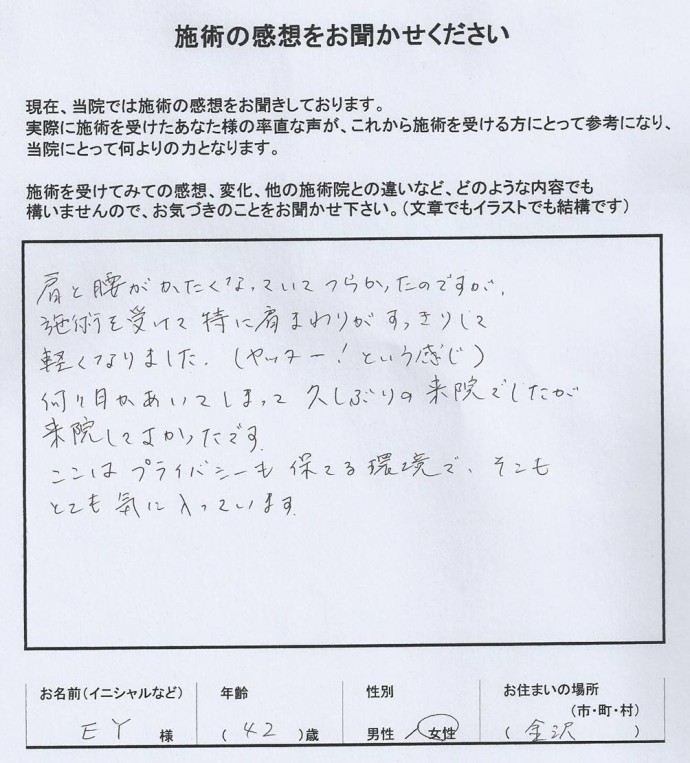 施術の感想をお聞かせください
現在、当院では施術の感想をお聞きしております。
実際に施術を受けたあなた様の率直な声が、これから施術を受ける方にとって参考になり、
当院にとって何よりの力となります。
施術を受けてみての感想、変化、他の施術院との違いなど、どのような内容でも
構いませんので、お気づきのことをお聞かせ下さい。（文章でもイラストでも結構です）
肩と腰がかたくなっていてつらかったのですが、
施術を受けて特に肩まわりがすっきりして
軽くなりました。（ヤッター！という感じ）
何ヶ月かあいてしまって久しぶりの来院でしたが
来院してよかったです。
ここはプライバシーも保てる環境で、そこも
とても気に入っています。
お名前（イニシャルなど） 年齢 性別 お住まいの場所
（市・町・村）
EY 様 （ 42 ）歳 男性／女性 （ 金沢 ）